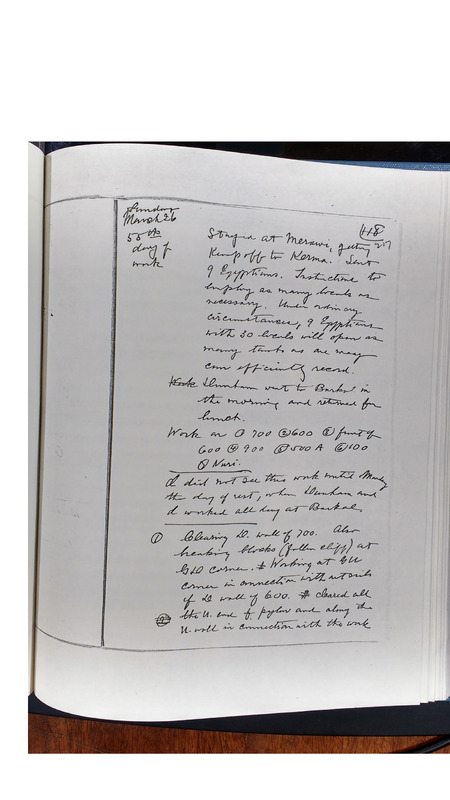 Sunday
March 26
55th
day of
work
118
217
Stayed at Merawi, getting
Kemp off to Kerma. Sent
9 Egyptians. Instructions to
employ as many locals as
necessary. Under ordinary
circumstances, 9 Egyptians
with 30 locals will open as
many tombs as one man
can efficiently record.
Work Dunham went to Barkal in
the morning and returned for
lunch.
Work on ① 700 ② 600 ③ front of
600 ④ 900 ⑤ 500 A ⑥ 100
⑦ Nuri.
I did not see this work until Monday
the day of rest, when Dunham and
I worked all day at Barkal.
① Clearing wall of 700. Also
breaking blocks (fallen cliff) at
corner. Working at
corner in connection with
of wall of 600. cleared all
the N. end of pylon and along the
N. wall in connection with the work